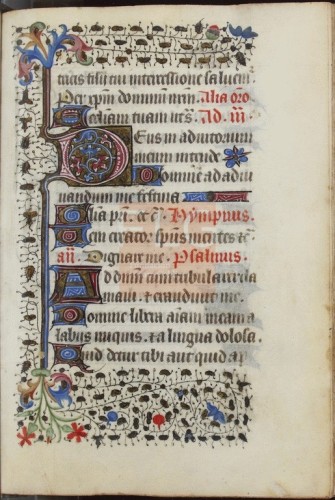 tuis tisu tui intercessione saluem
Per xpm dominum nrm. Alia oro
Ad. iii.
Deus in adiutorium
meum intende
Domine ad adiu
uandum me festina
Glia pri. et c̄. Hympnus.
Ueni creator spūs mentes tc̄.
an̄. Dignare me. Psalmus.
Ad dnm cum tribularer cla
maui. et exaudiuit me.
Domine libera aīam meam a
labiis iniquis. et a lingua dolosa.
Quid detur tibi aut quid ap